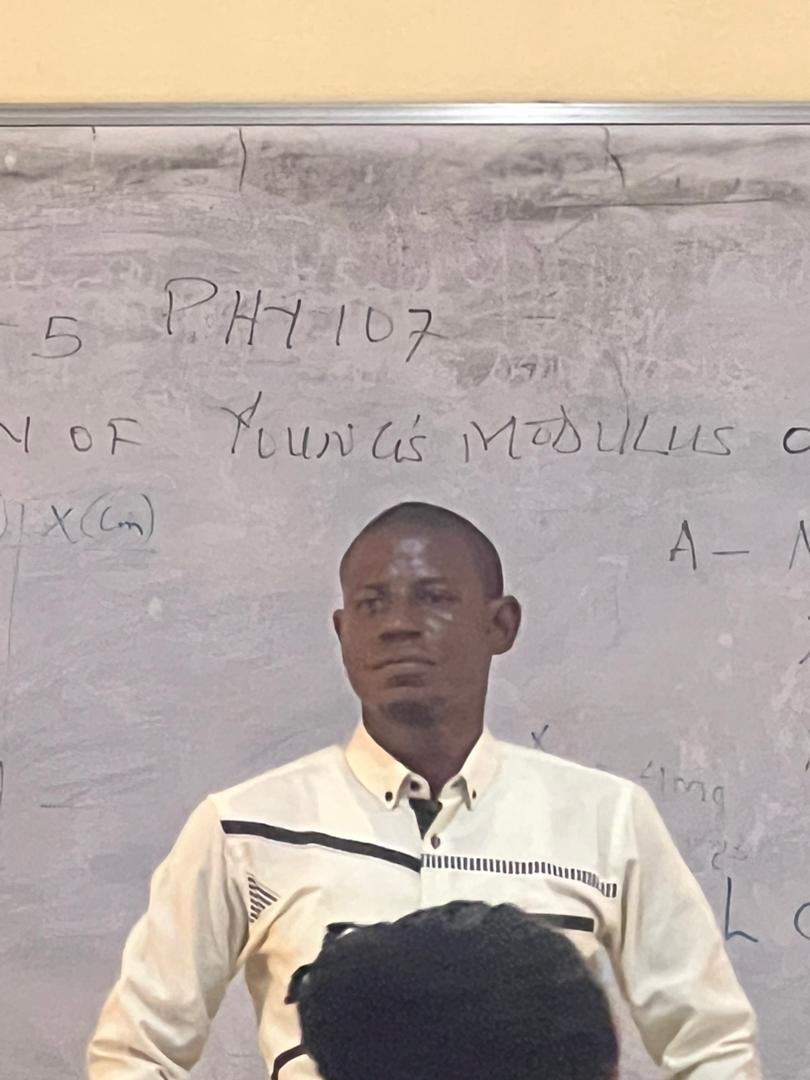 - 5 PHY 107
N OF YOUNG'S MODULUS O
X(cm)
A -
X
4mg
L